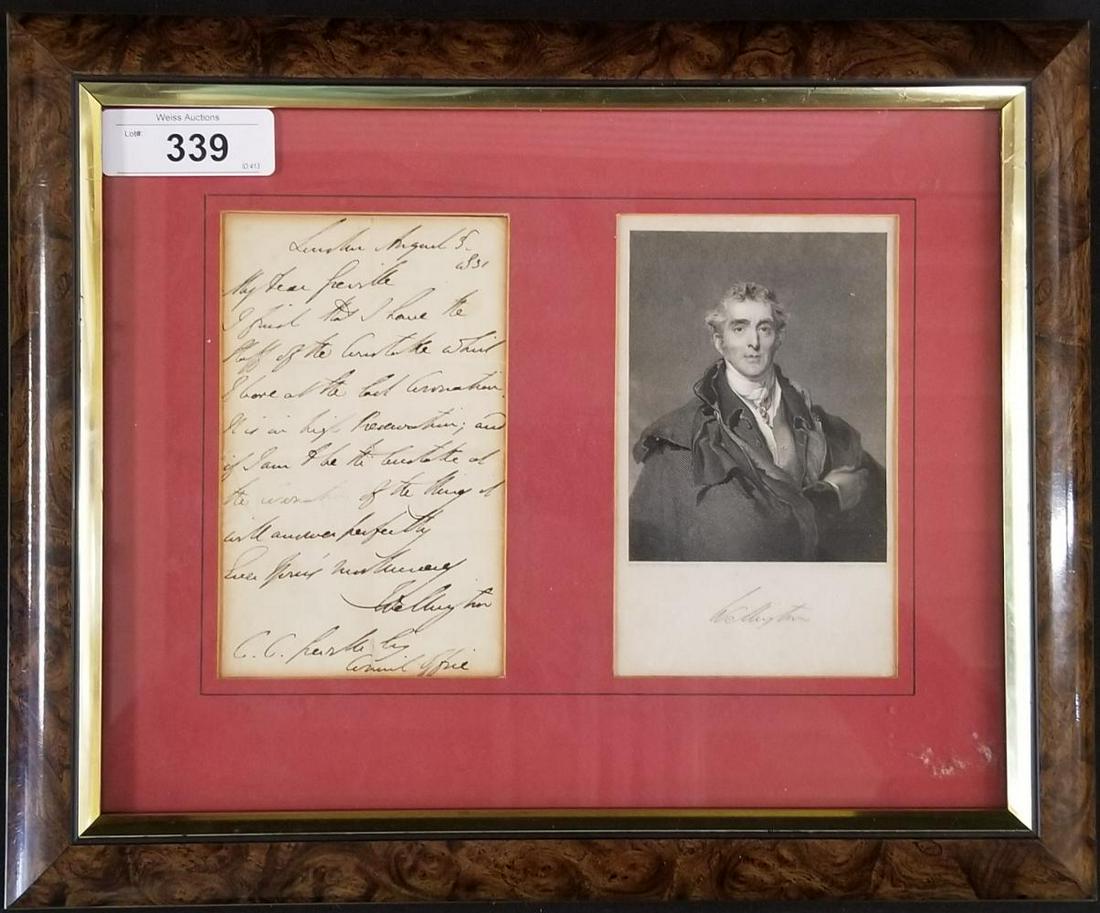 Weiss Auctions
Lot#:
339
London August 5.
1831
My Dear Greville
I find that I have the
Staff of the Constable which
I bore at the last Coronation.
It is in high Preservation; and
if I am to be the Constable at
the of the King it
will answer perfectly
Ever Yours most sincerely
Wellington
C. C. Greville Esq
Council Office
Wellington